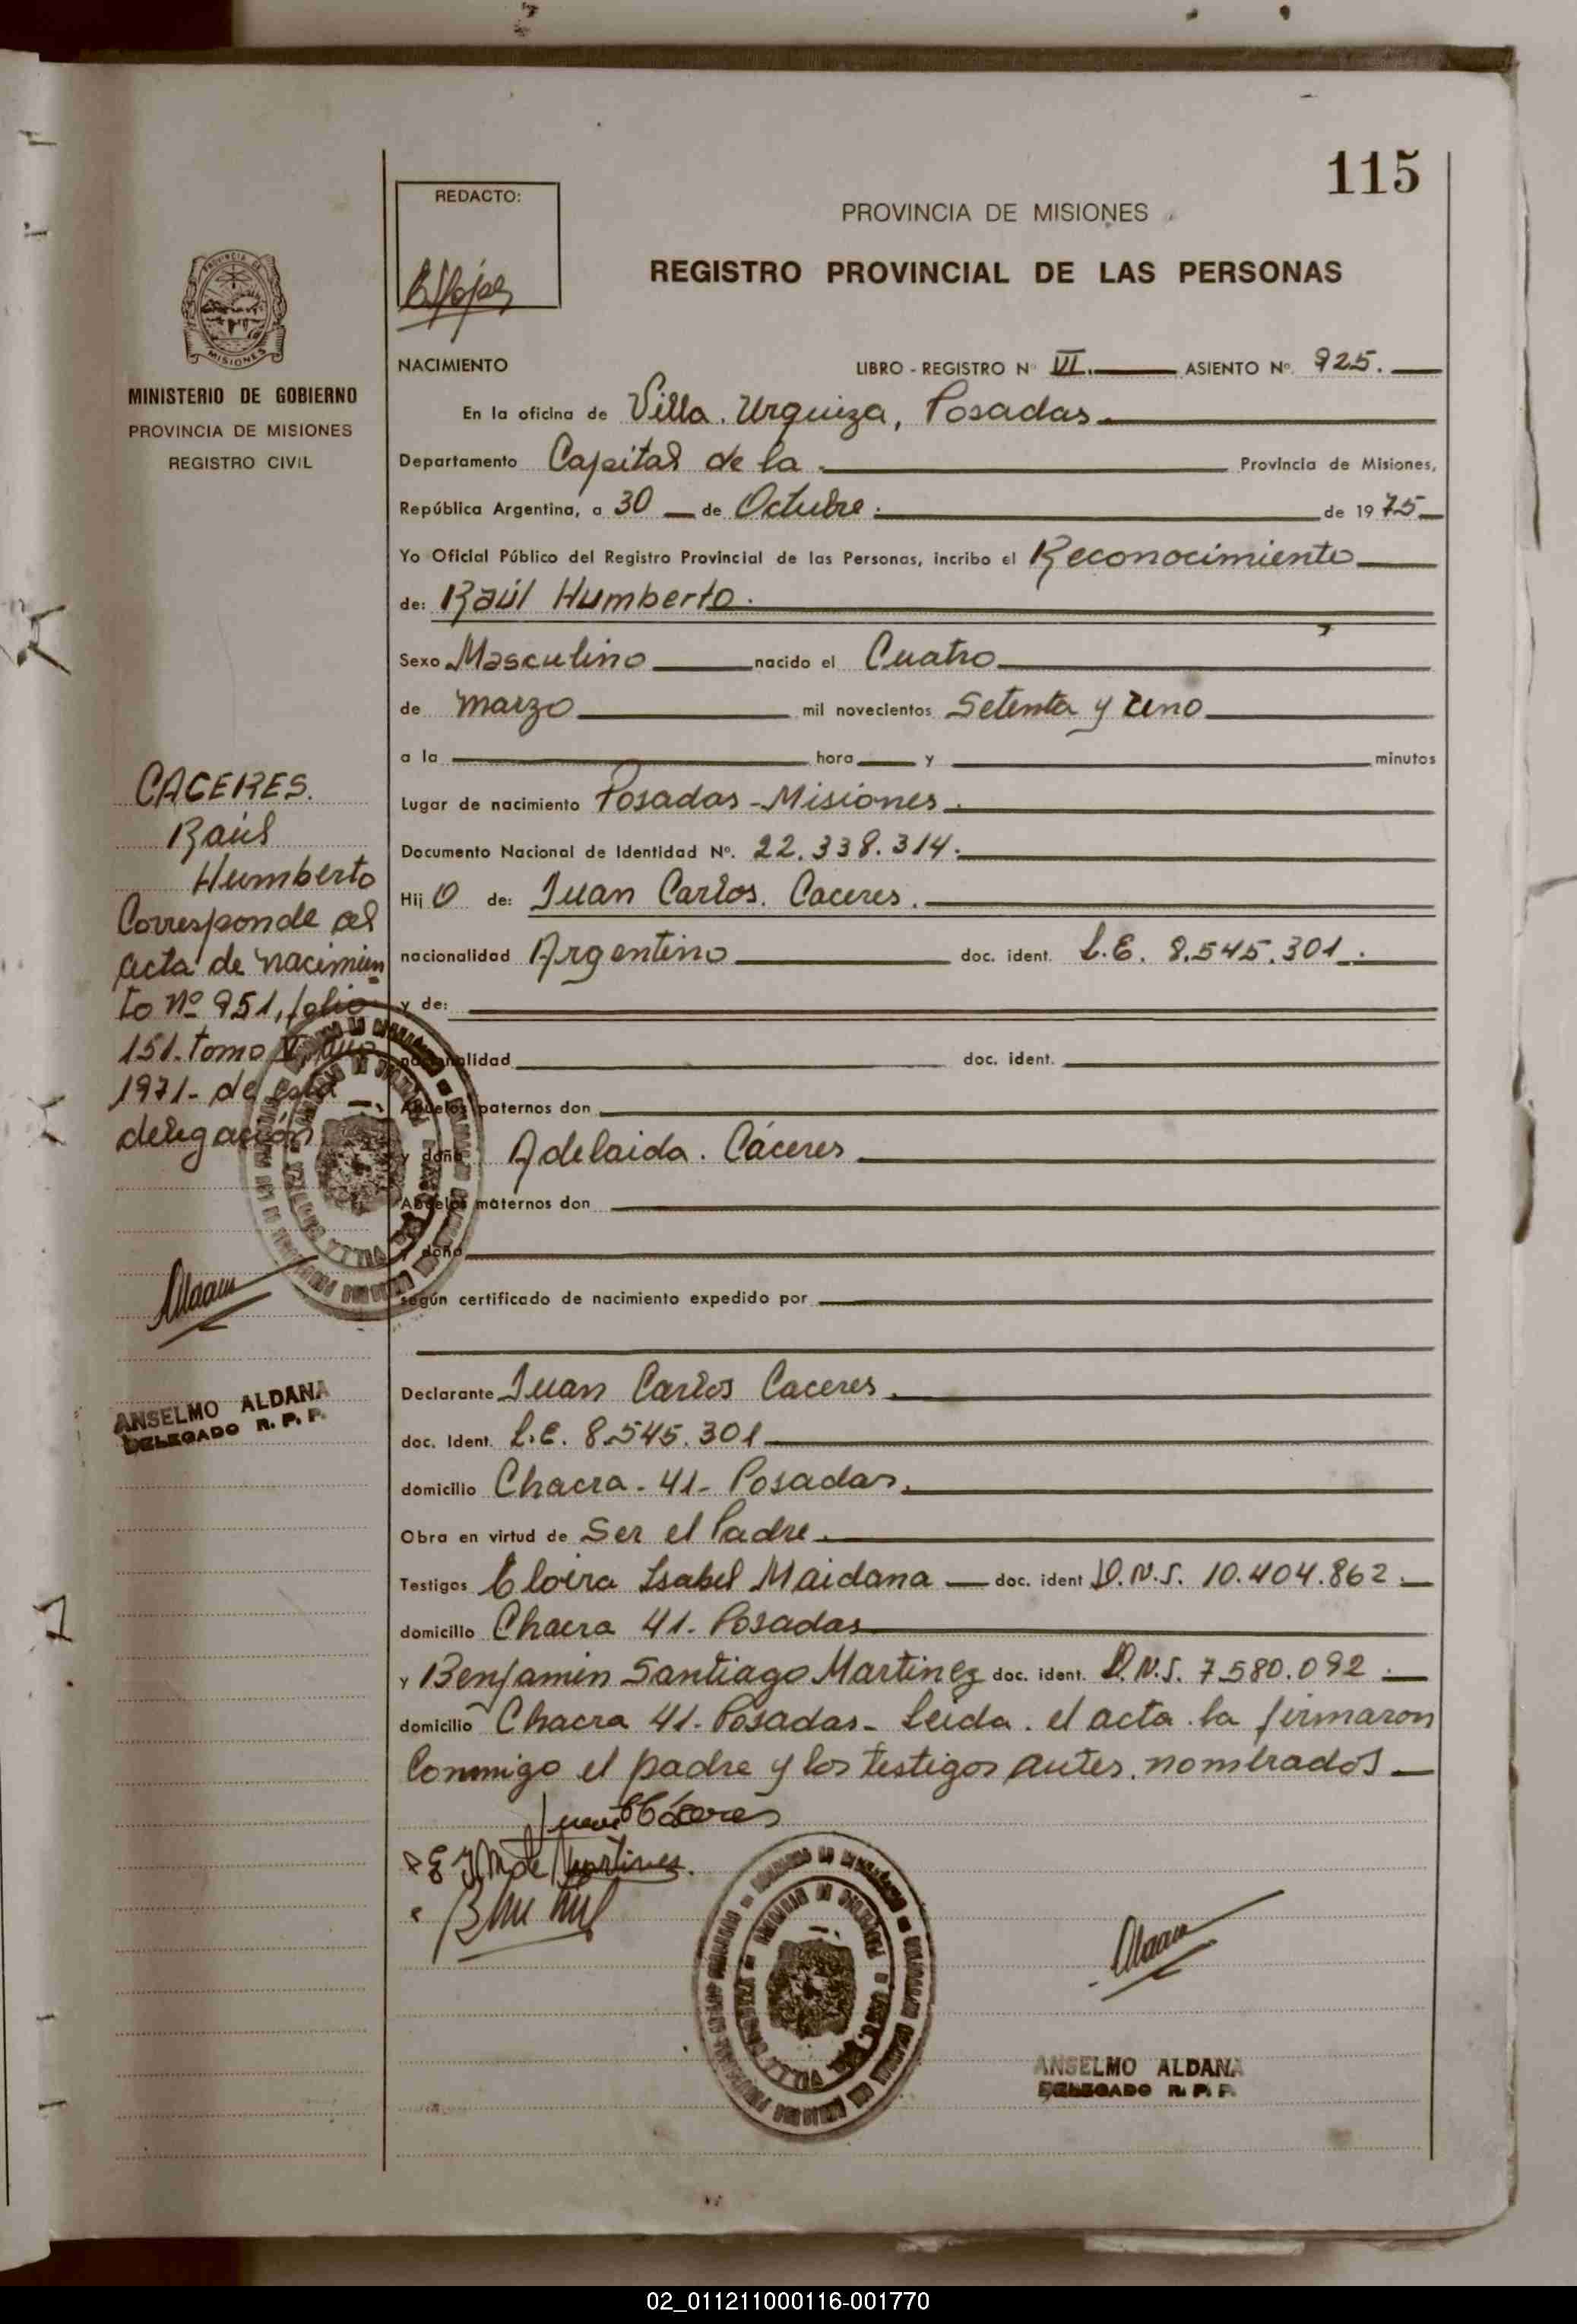 115
REDACTO:
PROVINCIA DE MISIONES
REGISTRO PROVINCIAL DE LAS PERSONAS
PROVINCIA DE
MISIONES
MINISTERIO DE GOBIERNO
PROVINCIA DE MISIONES
REGISTRO CIVIL
NACIMIENTO LIBRO - REGISTRO Nº VI. ASIENTO Nº. 925.
En la oficina de Villa. Urquiza, Posadas.
Departamento Capital de la Provincia de Misiones,
República Argentina, a 30 de Octubre. de 1975
Yo Oficial Público del Registro Provincial de las Personas, incribo el Reconocimiento
de: Raúl Humberto.
Sexo Masculino nacido el Cuatro
de marzo mil novecientos Setenta y uno
a la hora y minutos
Lugar de nacimiento Posadas - Misiones.
Documento Nacional de Identidad Nº. 22.338.314.
Hij o de: Juan Carlos. Caceres.
nacionalidad Argentino doc. ident. L.E. 8.545.301.
y de:
nacionalidad doc. ident.
Abuelos paternos don
y doña Adelaida. Cáceres
Abuelos maternos don
y doña
según certificado de nacimiento expedido por
Declarante Juan Carlos Caceres.
doc. Ident. L.E. 8.545.301
domicilio Chacra - 41 - Posadas.
Obra en virtud de Ser el Padre.
Testigos Eloira Isabel Maidana doc. ident D.N.I. 10.404.862.
domicilio Chacra 41. Posadas
y Benjamin Santiago Martinez doc. ident. D.N.I. 7.580.092.
domicilio Chacra 41. Posadas - Leida. el acta la firmaron
Conmigo el padre y los testigos antes. nombrados
CACERES.
Raúl
Humberto
Corresponde al
acta de nacimien
to nº 951, folio
151. tomo V, año
1971 - de esta
delegación
ANSELMO ALDANA
DELEGADO R. P. P.
ANSELMO ALDANA
DELEGADO R. P. P.
02_011211000116-001770